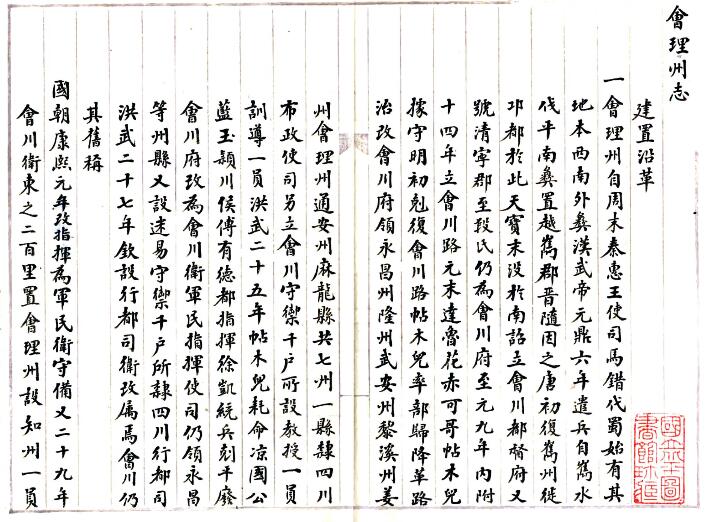 會理州志
建置沿革
一會理州自周末秦惠王使司馬錯伐蜀始有其
地本西南外彝漢武帝元鼎六年遣兵自嶲水
伐平南彝置越嶲郡晉隨因之唐初復嶲州徙
邛都於此天寶末没於南詔立會川都督府又
號清寧郡至段氏仍為會川府至元九年內附
十四年立會川路元末達魯花赤可哥帖木兒
據守明初剋復會川路帖木兒率部歸降革路
治改會川府領永昌州隆州武安州黎溪州姜
州會理州通安州麻龍縣共七州一縣隸四川
布政使司另立會川守禦千戶所設教授一員
訓導一員洪武二十五年帖木兒耗命凉國公
藍玉頴川侯傅有德都指揮徐凱統兵剋平廢
會川府改為會川衛軍民指揮使司仍領永昌
等州縣又設迷易守禦千戶所隸四川行都司
洪武二十七年欽設行都司衛改属焉會川仍
其舊稱
國朝康熙元年改指揮為軍民衛守備又二十九年
會川衛東之二百里置會理州設知州一員